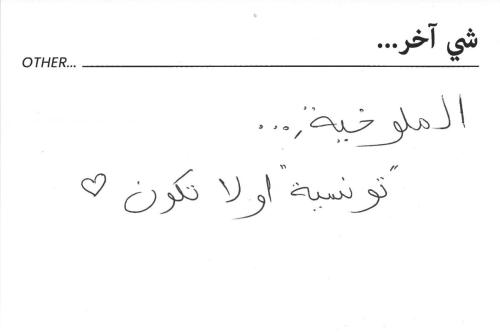 شي آخر...
OTHER...
الملوخية...
"تونسية" اولا تكون ♡